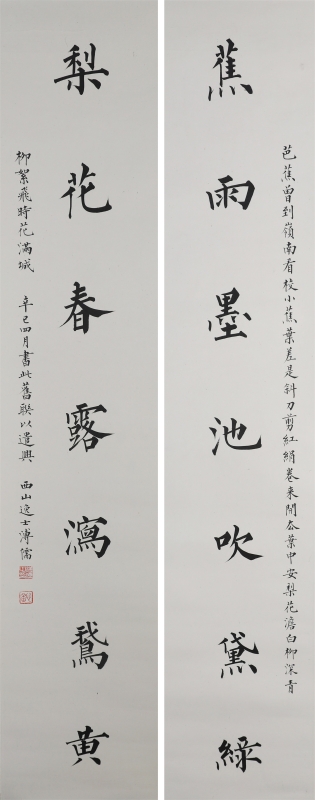 芭蕉曾到嶺南看校小蕉葉差是斜刀剪紅絹卷來開厺葉中安梨花澹白柳深青
蕉雨墨池吹黛綠
梨花春露瀉鵞黃
柳絮飛時花滿城 辛巳四月書此舊聯以遣興 西山逸士溥儒